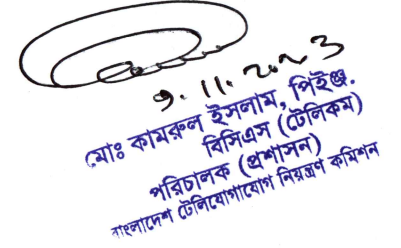 9.11.2023
মোঃ কামরুল ইসলাম, পিইঞ্জ.
বিসিএস (টেলিকম)
পরিচালক (প্রশাসন)
বাংলাদেশ টেলিযোগাযোগ নিয়ন্ত্রণ কমিশন